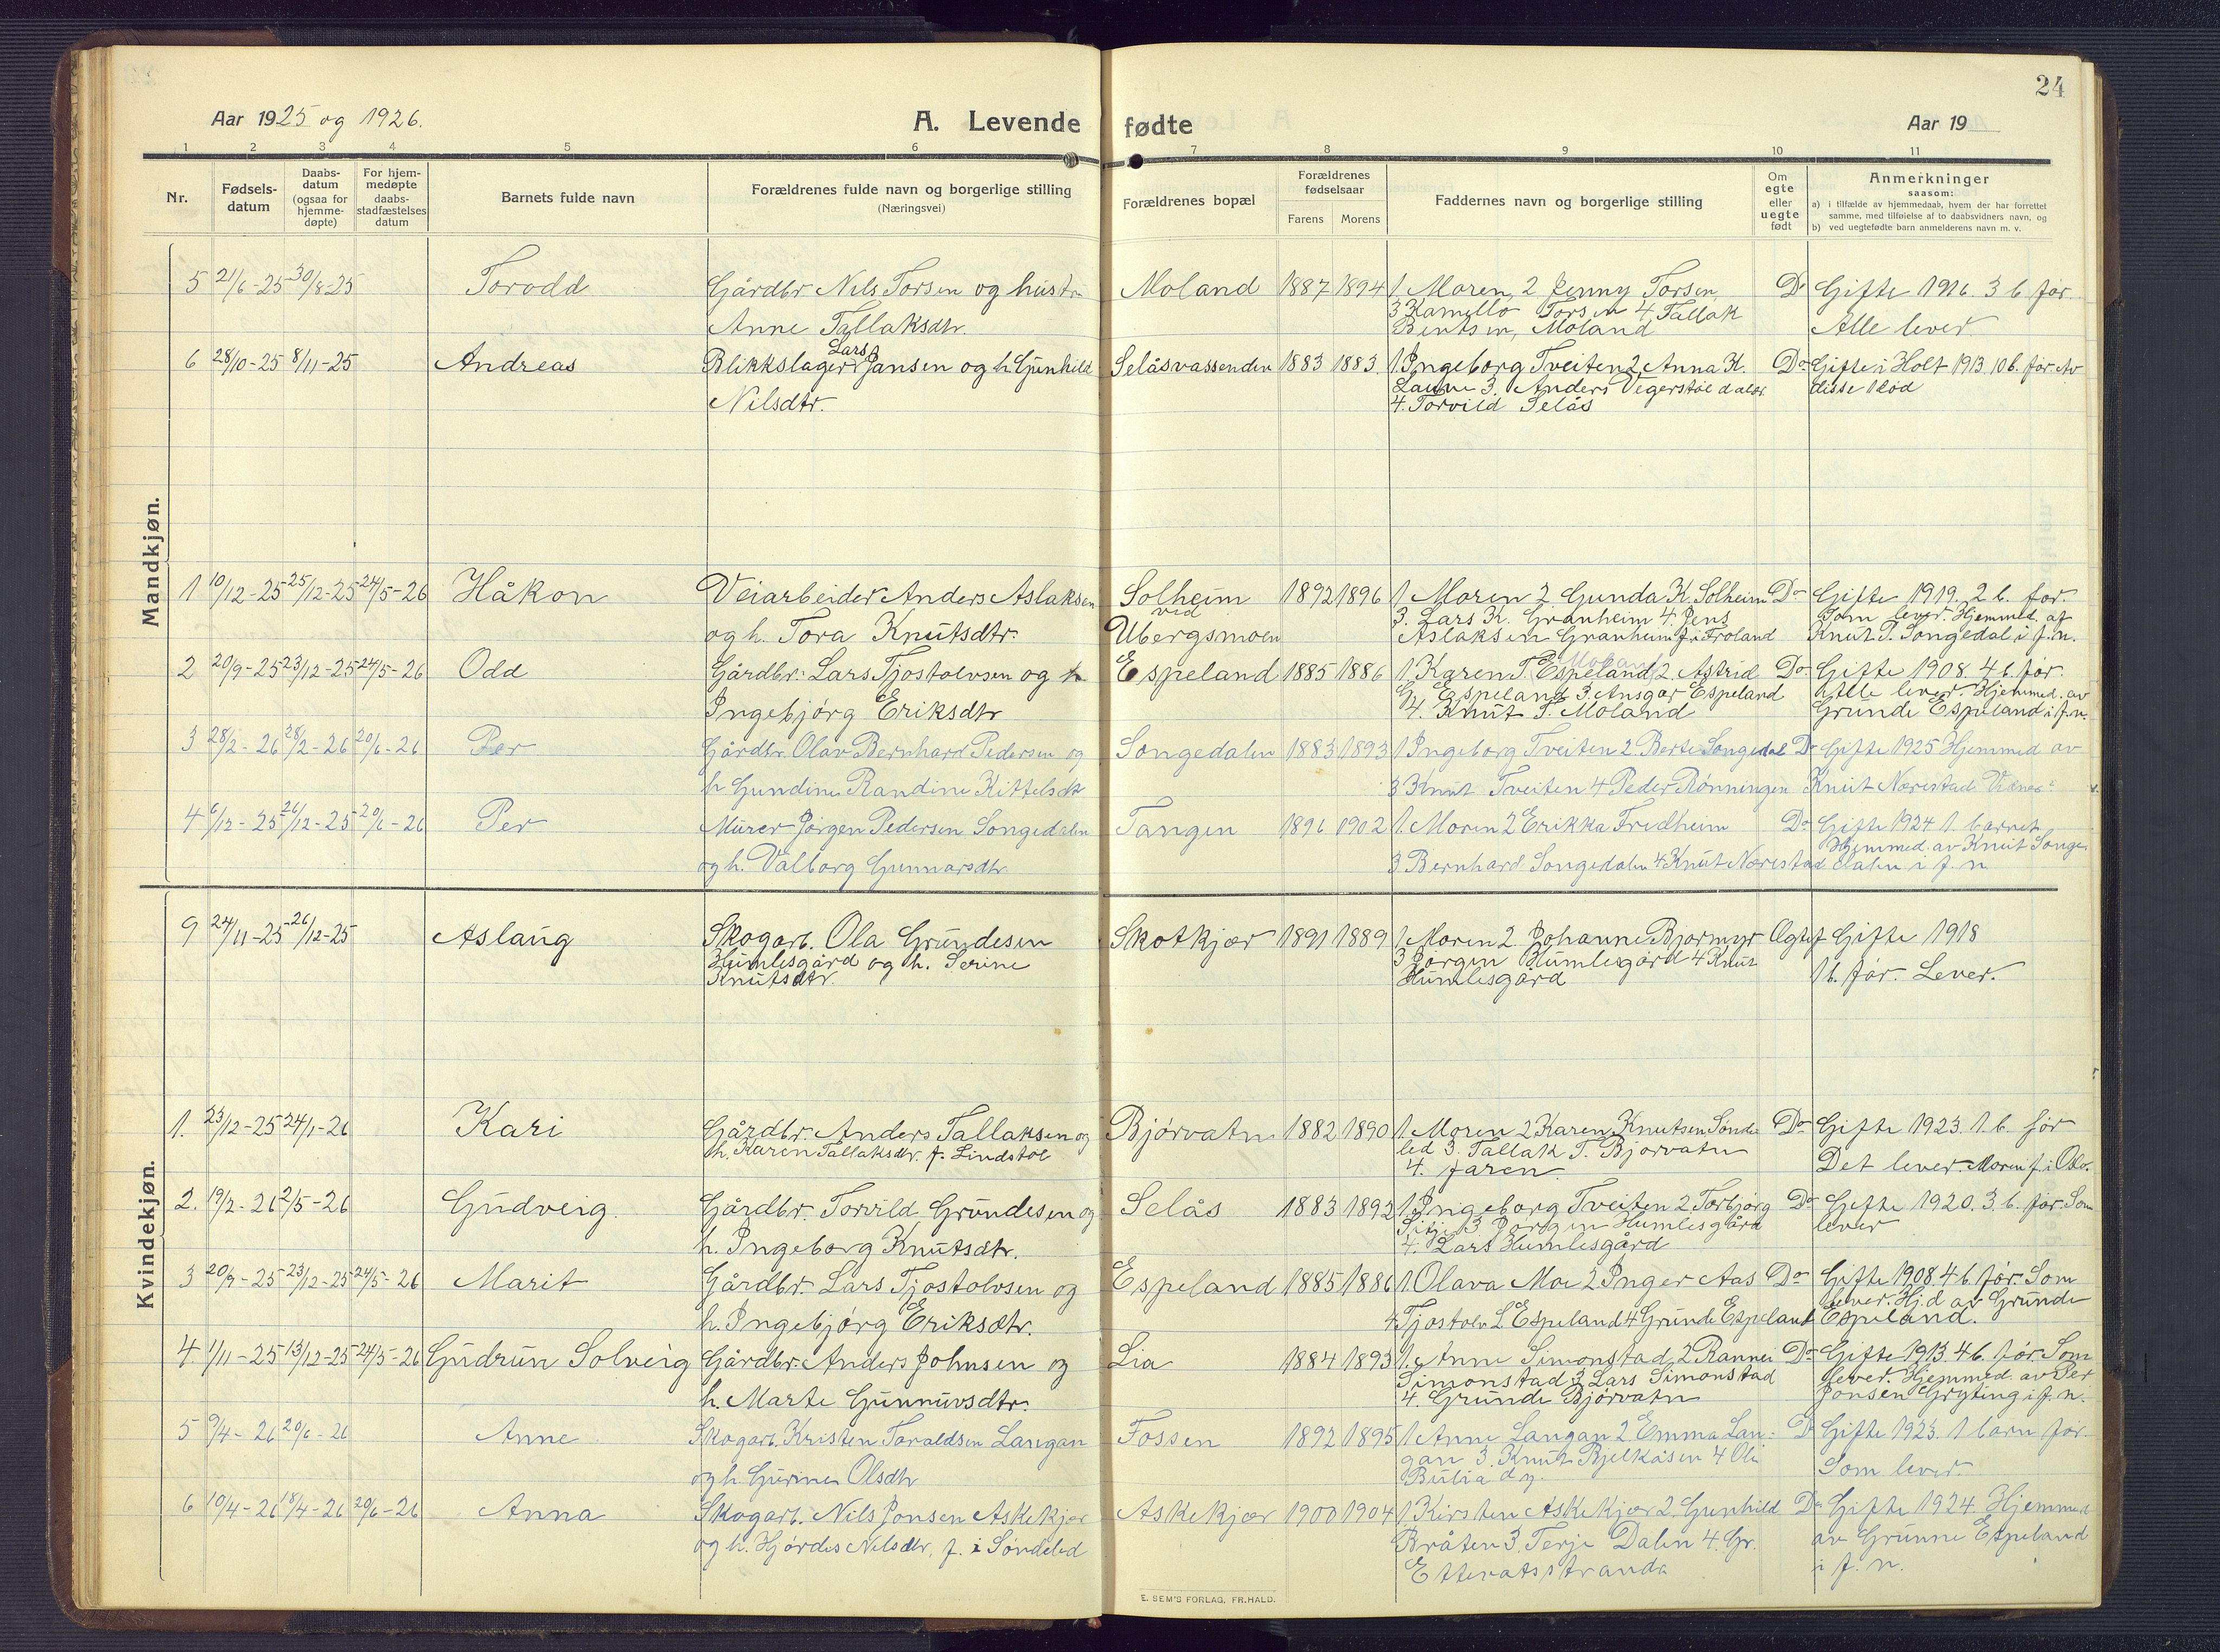 24
Aar 1925 og 1926.
A. Levende fødte
Aar 19
1 2 3 4 5 6 7 8 9 10 11
Nr.
Fødsels-
datum
Daabs-
datum
(ogsaa for
hjemme-
døpte)
For hjem-
medøpte
daabs-
stadfæstelses
datum
Barnets fulde navn
Forældrenes fulde navn og borgerlige stilling
(Næringsvei)
Forældrenes bopæl
Forældrenes
fødselsaar
Farens Morens
Faddernes navn og borgerlige stilling
Om
egte
eller
uegte
født
Anmerkninger
saasom:
a) i tilfælde av hjemmedaab, hvem der har forrettet
samme, med tilføielse af to daabsvidners navn, og
b) ved uegtefødte barn anmelderens navn m. v.
Mandkjøn.
5 21/6-25 30/8-25 Torodd Gårdbr. Nils Torsen og hustr. Moland 1887 1894 1. Moren, 2 Jenny Torsen, Do Gifte 1916. 3 b. før.
Anne Tallaksdtr. 3 Kamillo Torsen 4 Tallak
Bentsen, Moland Alle lever.
6 28/10-25 8/11-25 Andreas Blikkslager Lars Jansen og h. Gunhild Selåsvassenden 1883 1883 1. Ingeborg Tveiten 2. Anna K. Do Gifte i Holt 1913. 10 b. før. Av
Nilsdtr. Lauve 3. Anders Vegerstøl dalen disse 1 død
4. Torvild Selås
1 10/12-25 25/12-25 24/5-26 Håkon Veiarbeider Anders Aslaksen Solheim 1892 1896 1. Moren 2. Gunda K. Solheim Do Gifte 1919. 2 b. før.
ved 3. Lars K. Granheim 4. Jens Som lever. Hjemmed. af
og h. Tora Knutsdtr. Ubergsmoen Aslaksen Granheim f. i Froland Knut T. Songedal i f. n.
2 20/9-25 23/12-25 24/5-26 Odd Gårdbr. Lars Tjostolvsen og h. Espeland 1885 1886 1. Karen T. Espeland 2. Astrid Do Gifte 1908. 4 b. før.
Moland
Ingebjørg Eriksdtr G. Espeland 3. Ansgar Espeland Alle lever. Hjemmed. av
4. Knut T. Moland Grunde Espeland i f. n.
3 28/2-26 28/2-26 20/6-26 Per Gårdbr. Olav Bernhard Pedersen og Songedalen 1883 1893 1 Ingeborg Tveiten 2 Berte Songedal Do Gifte 1925 Hjemmed av
h Gundine Randine Kittelsdtr 3 Knut Tveiten 4 Peder Rønningen Knut Nærestad
4 6/12-25 26/12-25 20/6-26 Per Murer Jørgen Pedersen Songedalen Tangen 1896 1902 1. Moren 2 Erikka Fredheim Do Gifte 1924 1. barnet
og h. Valborg Gunnarsdtr. 3 Bernhard Songedalen 4 Knut Nærestad Hjemmed. av Knut Songe
dalen i f. n
Kvindekjøn.
9 24/11-25 26/12-25 Aslaug Skogarb. Ola Grundesen Skotkjær 1891 1889 1. Moren 2. Johanne Bjormyr Ægtef Gifte 1918
Humlesgård og h. Serine 3 Jørgen Humlesgård 4 Knut
Knutsdtr. Humlesgård 1 b. før. Lever.
1. 23/12-25 24/1-26 Kari Gårdbr. Anders Tallaksen og Bjørvatn 1882 1890 1. Moren 2 Karen Knutsen Sønde Do Gifte 1923. 1. b. før
h. Karen Tallaksdtr. f. Lindstøl led 3. Tallak T. Bjørvatn
4. faren. Det lever. Moren f. i Oslo.
2. 19/2-26 2/5-26 Gudveig. Gårdbr. Torvild Grundesen og Selås 1883 1892 1. Ingeborg Tveiten 2 Torbjørg Do Gifte 1920. 3. b. før. Som
h. Ingeborg Knutsdtr. 3 Jørgen Humlesgård lever
4. Lars Humlesgård
3 20/9-25 23/12-25 24/5-26 Marit Gårdbr. Lars Tjostolvsen og Espeland 1885 1886 1. Olava Moe 2 Inger Aas Do Gifte 1908. 4 b. før. Som
h. Ingebjørg Eriksdtr. Tjostolv L Espeland 4 Grunde Espeland lever. Hj.d av Grunde
Espeland.
4. 1/11-25 13/12-25 24/5-26 Gudrun Solveig Gårdbr. Anders Johnsen og Lia 1884 1893 1. Anne Simonstad 2 Rannei Do Gifte 1913. 4 b. før. Som
h. Marte Gunnuvsdtr. Simonstad 3 Lars Simonstad lever. Hjemmed. av Per
4. Grunde Bjørvatn Jonsen Gryting i f. n.
5 9/4-26 20/6-26 Anne Skogarb. Kristen Toraldsen Langan Fossen 1892 1895 1 Anne Langan 2 Emma Lan- Do Gifte 1923. 1 barn før.
og h. Gurine Olsdtr gan 3. Knut Bjelkåsen 4 Ole
Bulia d.y. Som lever.
6 10/4-26 18/4-26 20/6-26 Anna Skogarb. Nils Jonsen Askekjær Askekjær 1900 1904 1 Kirsten Askekjær 2. Gunhild Do Gifte 1924. Hjemmed
og h. Hjørdis Nilsdtr, f. i Søndeled Bråten 3. Terje Dalen 4. Gr. av Grunne Espeland
Ettevatsstranda i f. n.
E. SEM'S FORLAG, FR.HALD.